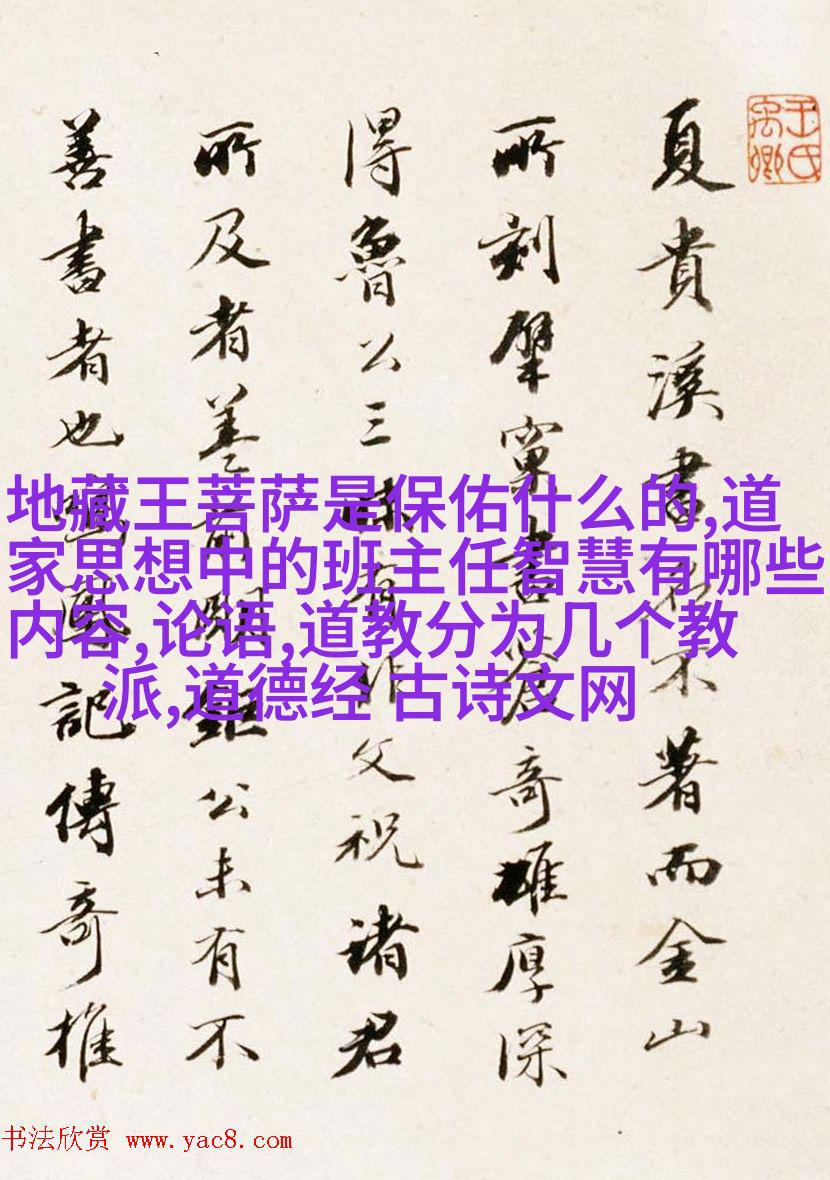 王氏
禹卿
夏貴溪書名不著而金山
所刻擘窠書蒼奇雄厚深
得魯公三昧有非文祝諸君
所及者蓋前明鉅公未有不
善書者也鳴鳳記傳奇推
地藏王菩萨是保佑什么的,道
家思想中的班主任智慧有哪些
内容,论语,道教分为几个教
派,道德经 古诗文网
书法欣赏 www.yac8.com